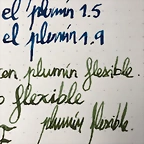 el plumín 1.5
el plumín 1.9
con plumín flexible.
flexible
plumín flexible.